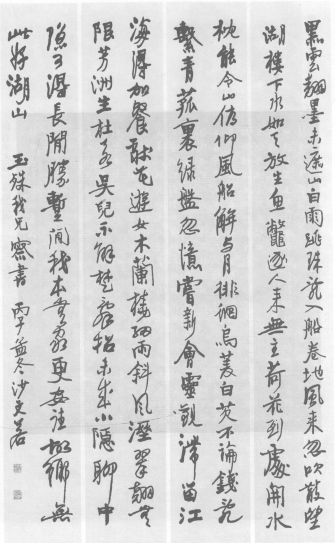 黑雲翻墨未遮山白雨跳珠亂入船卷地風來忽吹散望
湖樓下水如天放生魚鱉逐人來無主荷花到處開水
枕能令山俯仰風船解与月徘徊烏菱白芡不論錢亂
繫青菰裹綠盤忽憶嘗新會靈觀滯留江
海得加餐獻花遊女木蘭橈細雨斜風溼翠翹無
限芳洲生杜若吳兒不解楚辭招未成小隱聊中
隱可得長閒勝暫閒我本無家更安往故鄉無
此好湖山 玉殊我兄察書 丙子孟冬沙文若